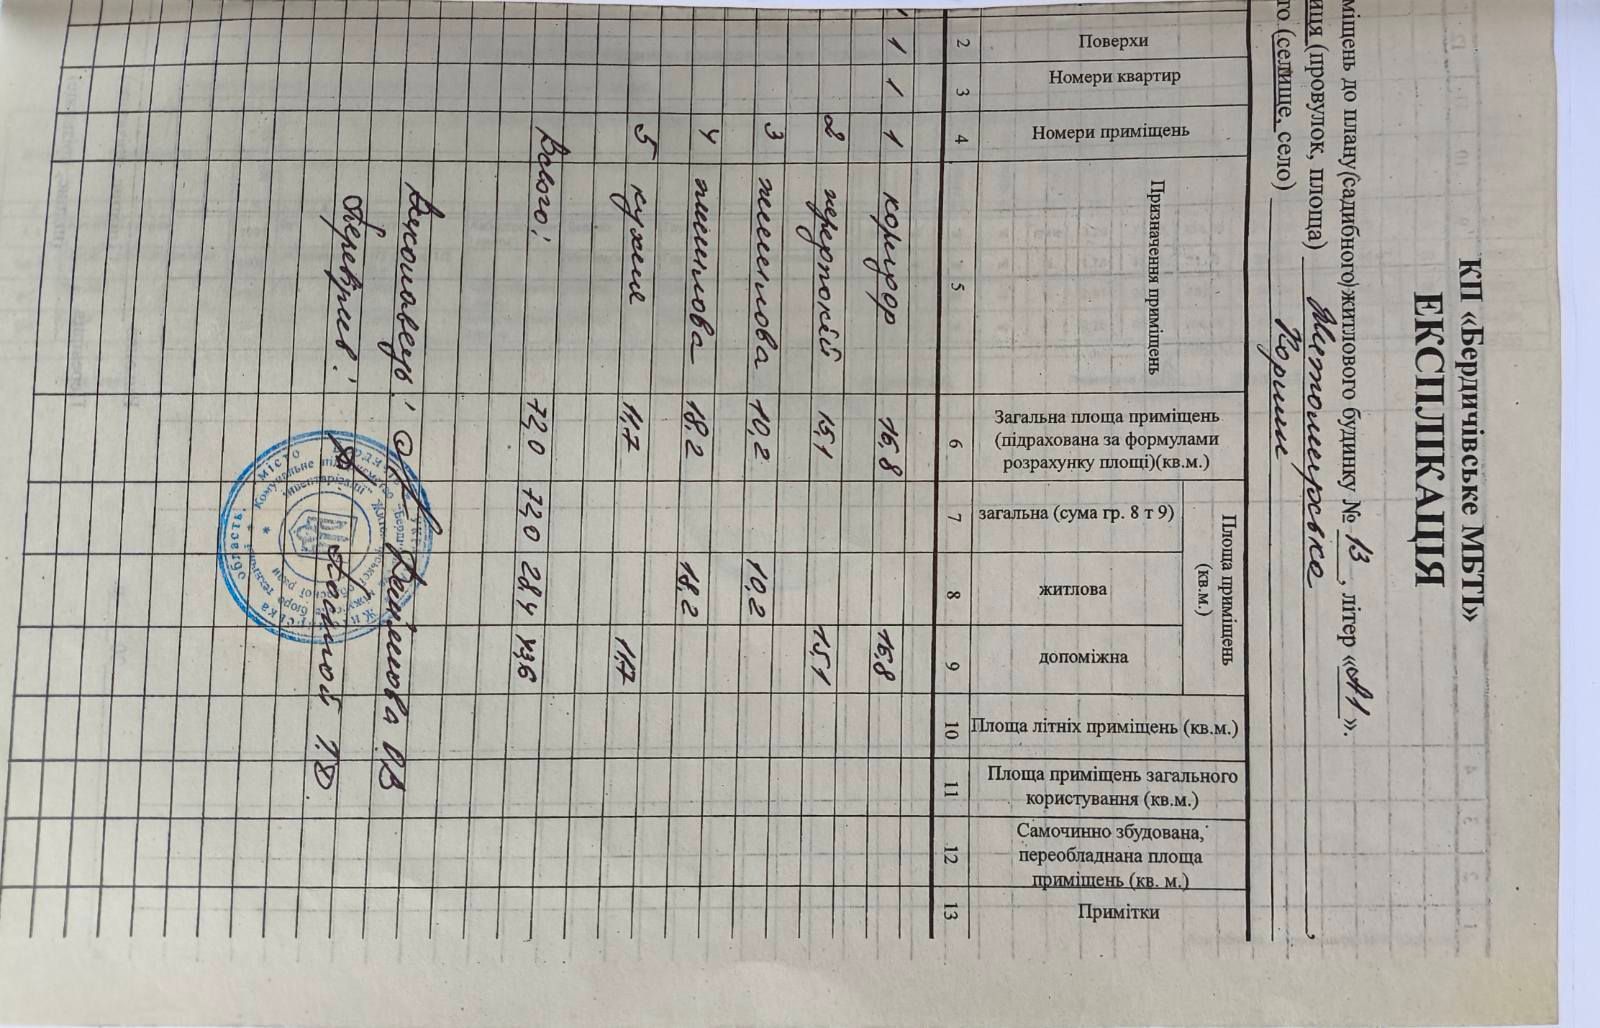 КП «Бердичівське МБТІ»
ЕКСПЛІКАЦІЯ
міщень до плану(садибного)житлового будинку № 13, літер «А1».
иця (провулок, площа) Житомирська,
то (селище, село)
Поверхи
Номери квартир
Номери приміщень
Призначення приміщень
Загальна площа приміщень
(підрахована за формулами
розрахунку площі)(кв.м.)
Площа приміщень
(кв.м.)
загальна (сума гр. 8 т 9)
житлова
допоміжна
Площа літніх приміщень (кв.м.)
Площа приміщень загального
користування (кв.м.)
Самочинно збудована,
переобладнана площа
приміщень (кв. м.)
Примітки
2 3 4 5 6 7 8 9 10 11 12 13
1 1 1 коридор 16,8 16,8
2 передпокій 15,1 15,1
3 житлова 10,2 10,2
4 житлова 18,2 18,2
5 кухня 11,7 11,7
Всього: 72,0 72,0 28,4 43,6
Виконавець: О.В
Перевірив: Т.Д.